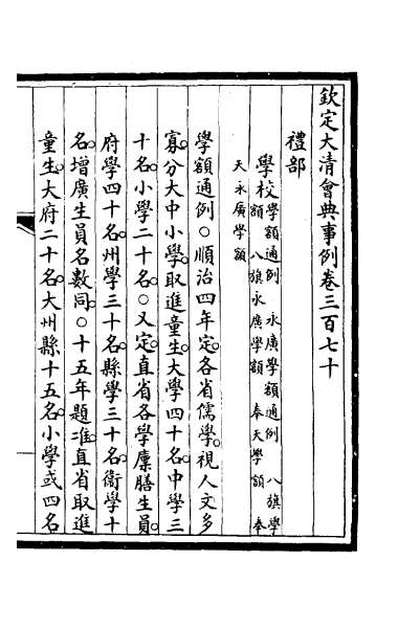 欽定大清會典事例卷三百七十
禮部
學校學額通例 永廣學額通例 八旗學
額 八旗永廣學額 奉天學額 奉
天永廣學額
學額通例○順治四年定。各省儒學。視人文多
寡。分大中小學。取進童生。大學四十名。中學三
十名。小學二十名。○又定。直省各學廩膳生員。
府學四十名。州學三十名。縣學二十名。衛學十
名。增廣生員名數同。○十五年題准。直省取進
童生。大府二十名。大州縣十五名。小學或四名